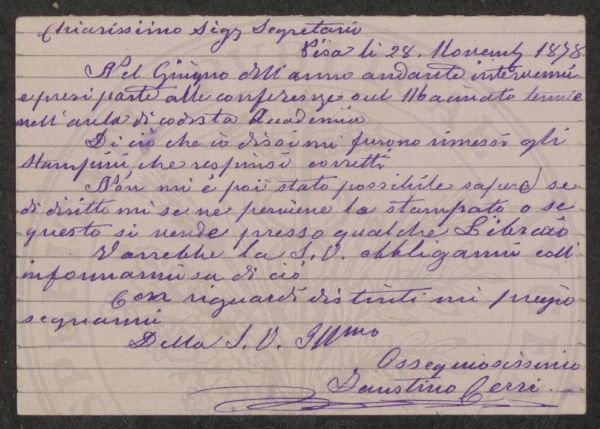 Chiarissimo Sigr Segretario
Pisa li 28. Novemb 1878
Nel Giugno dell'anno andante intervenni
e presi parte alle conferenze sul Macinato tenute
nell'aula di codesta Accademia
Di ciò che io dissi mi furono rimessi gli
stampini, che respinsi corretti.
Non mi è poi stato possibile sapere se
di diritto mi se ne perviene lo stampato o se
questo si vende presso qualche Libraio
Vorrebbe la S. V. obbligarmi coll
informarmi su di ciò
Con riguardi distinti mi pregio
segnarmi
Della S. V. Illmo
Ossequiosissimo
Faustino Cerri.